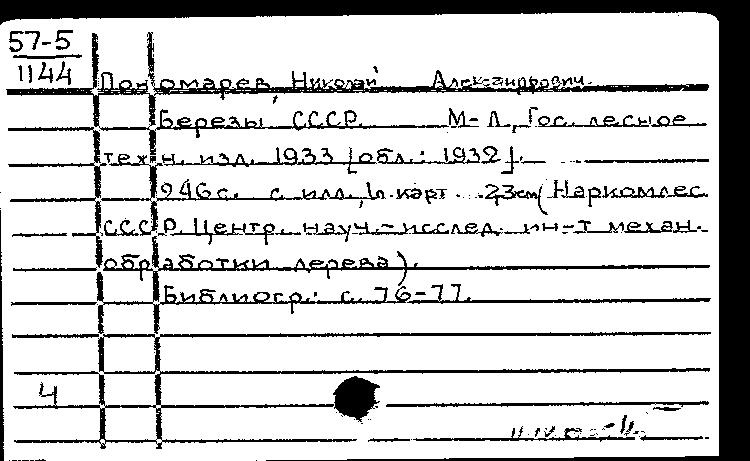 57-5
1144
Пономарев, Николай Александрович.
Березы СССР. М-Л, Гос. лесное
техн. изд. 1933 [обл.: 1932].
246с. с илл., 1л.карт. 23см (Наркомлес
СССР. Центр. науч.-исслед. ин-т механ.
обработки дерева).
Библиогр.: с. 76-77.
4